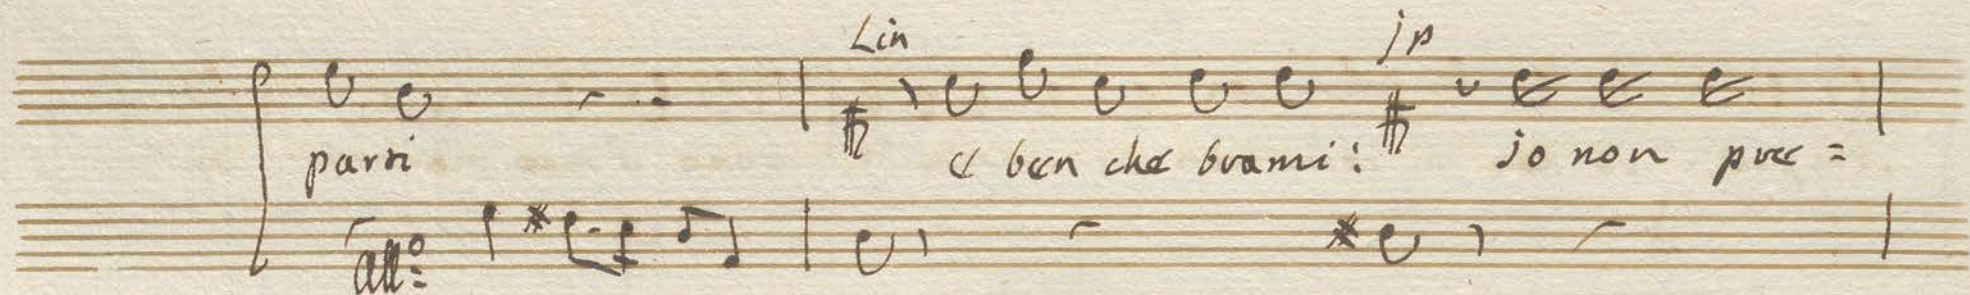 Lin jp
parti e ben che brami: io non pre=
All:º